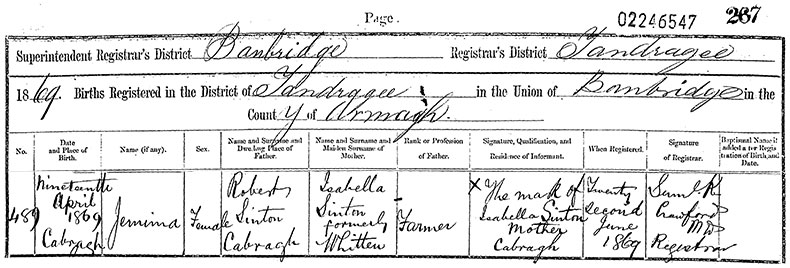 Page. 02246547 287
Superintendent Registrar's District Banbridge Registrar's District Tandragee
1869. Births Registered in the District of Tandragee in the Union of Banbridge in the
County of Armagh.
No. Date and Place of Birth. Name (if any). Sex. Name and Surname and Dwelling Place of Father. Name and Surname and Maiden Surname of Mother. Rank or Profession of Father. Signature, Qualification, and Residence of Informant. When Registered. Signature of Registrar. Baptismal Name if added after Registration of Birth, and Date.
489 Nineteenth April 1869 Cabragh Jemima Female Robert Sinton Cabragh Isabella Sinton formerly Whitten Farmer X The mark of Isabella Sinton Mother Cabragh Twenty second June 1869 Crawford MD Registrar